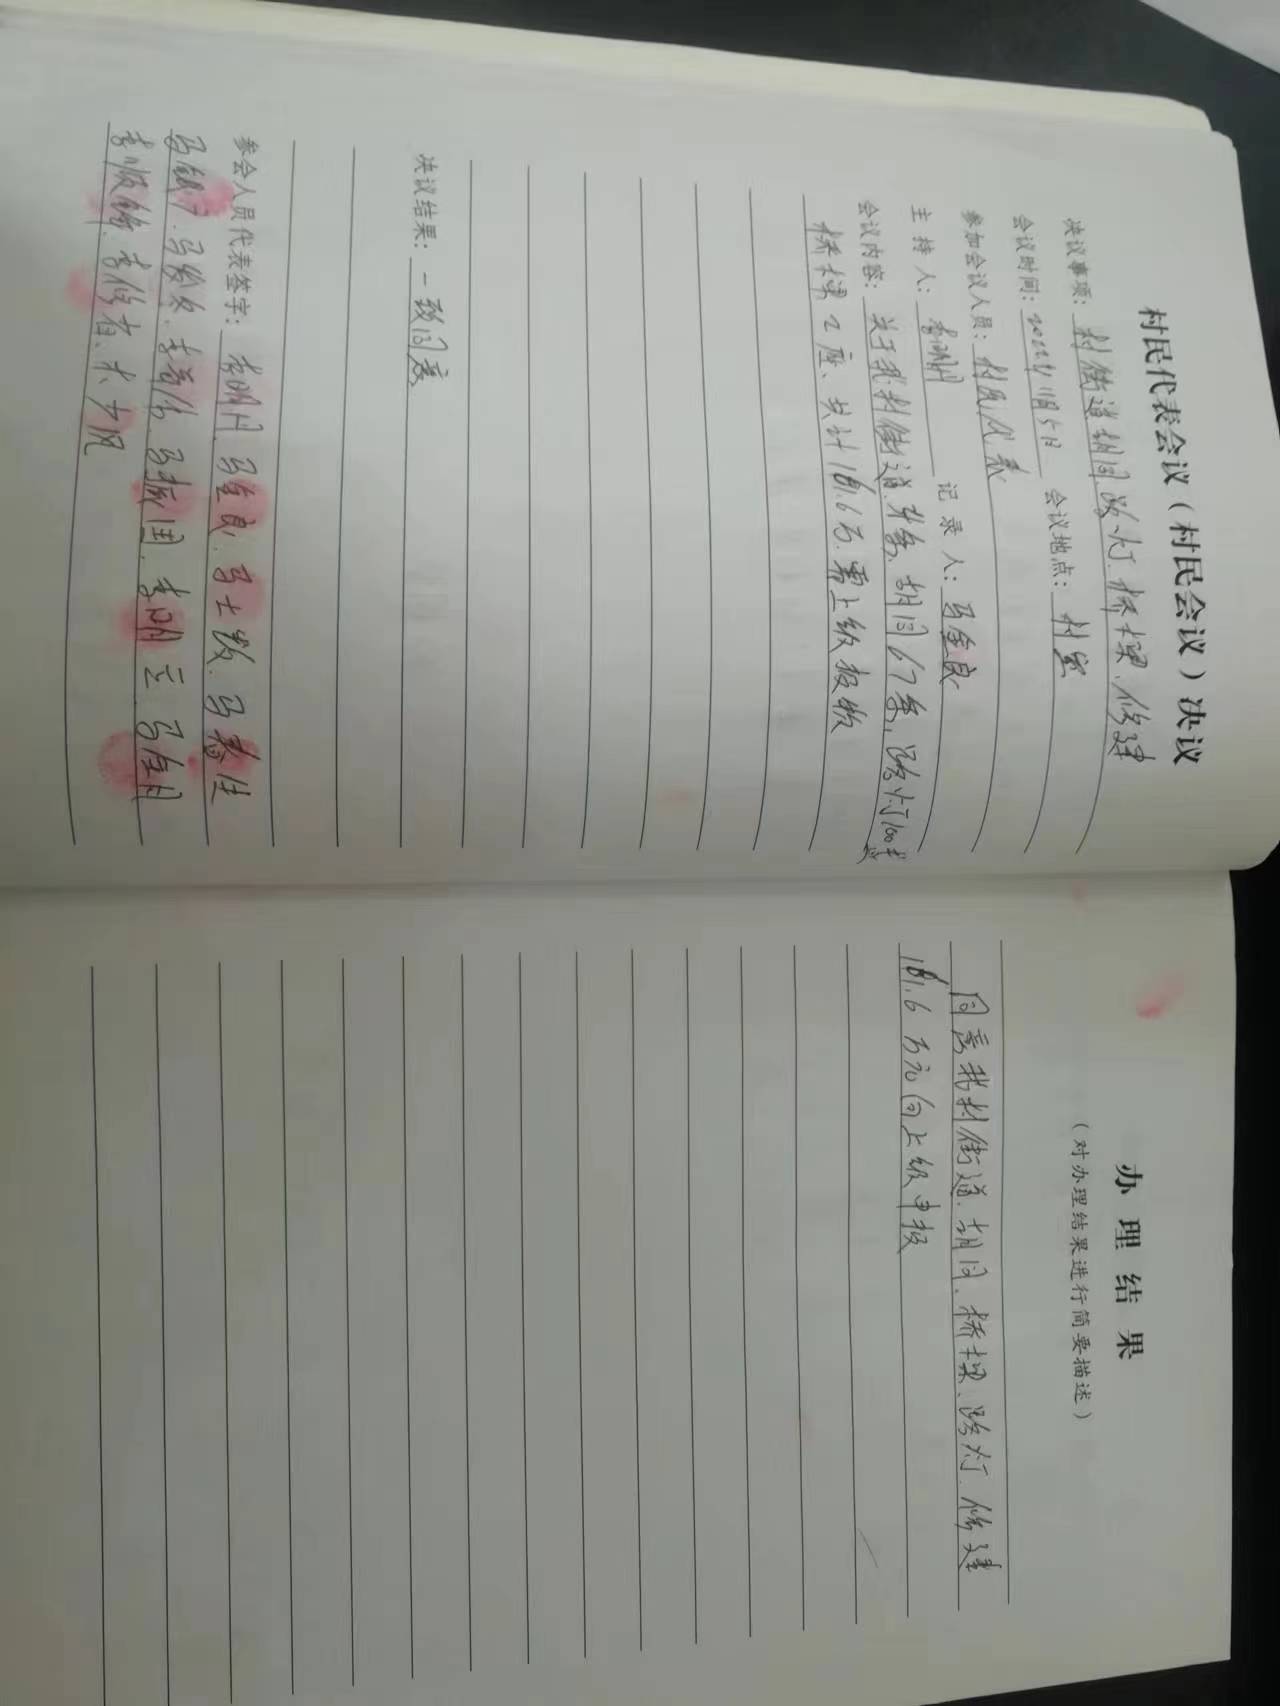 村民代表会议（村民会议）决议
决议事项：村街道胡同路灯.桥樑.修建
会议时间：2022年11月5日 会议地点：村室
参加会议人员：村民代表
主 持 人：李明月 记 录 人：马金良
会议内容：关于我村街道 条、胡同67条，路灯100
桥樑2座、共计181.6万.需上级报
决议结果：一致同意
参会人员代表签字：李明月.马金良.马士发.马春生
马银 .马发友.李 .马振国.李明立.马金月
李顺 .李俊省、 凤
办理结果
（对办理结果进行简要描述）
同意我村街道.胡同.桥樑、路灯.修建
181.6万元向上级申报